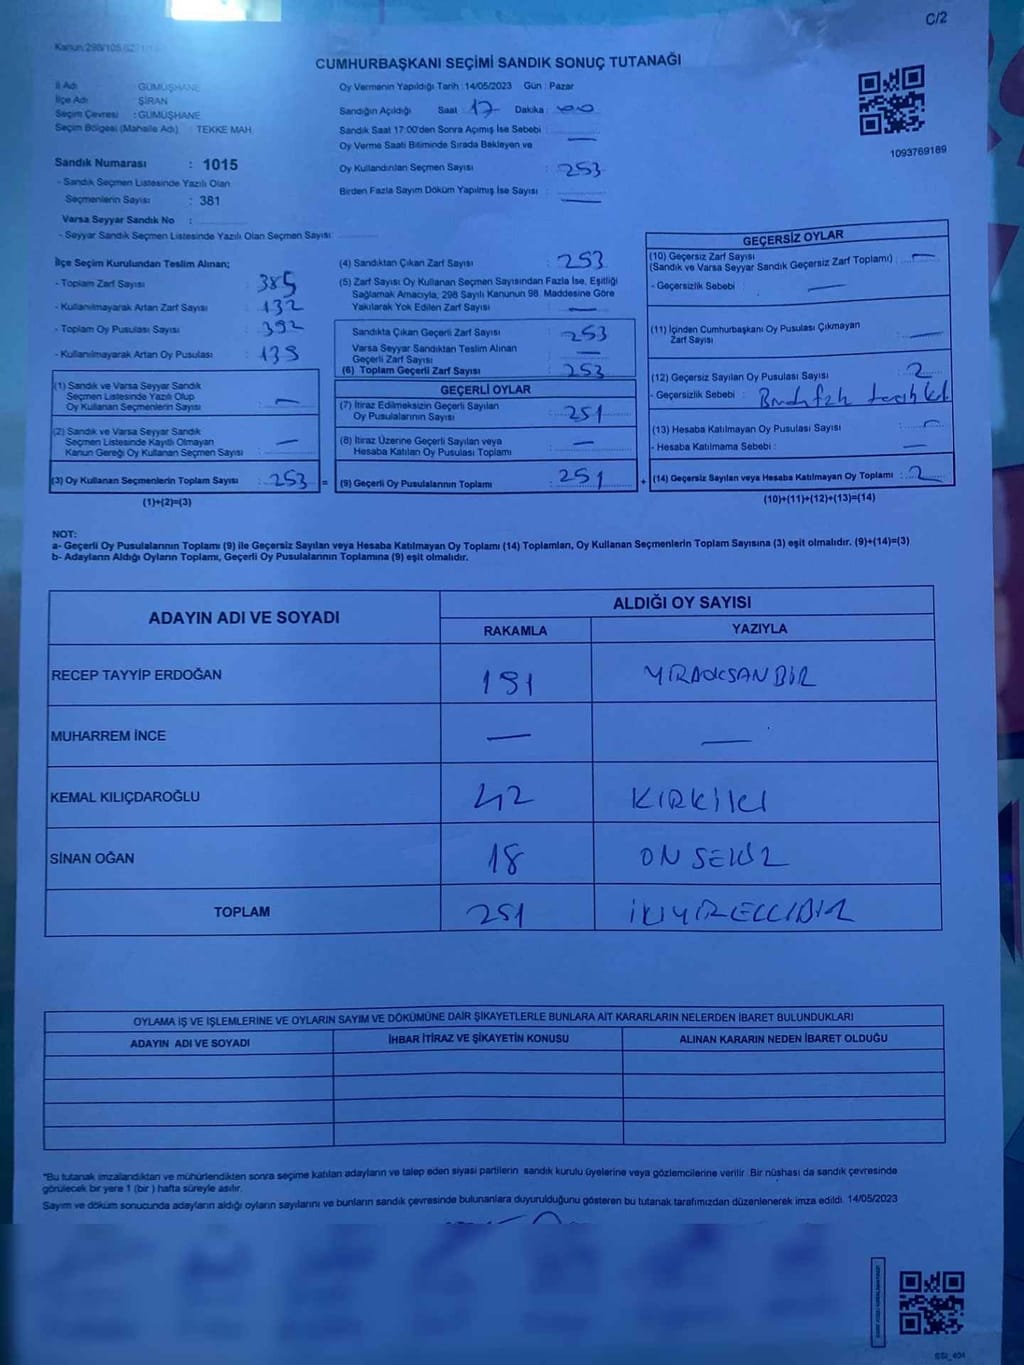 C/2
Kanun:298/105
CUMHURBAŞKANI SEÇİMİ SANDIK SONUÇ TUTANAĞI
İl Adı : GÜMÜŞHANE
İlçe Adı : ŞİRAN
Seçim Çevresi : GÜMÜŞHANE
Seçim Bölgesi (Mahalle Adı) : TEKKE MAH.
Sandık Numarası : 1015
- Sandık Seçmen Listesinde Yazılı Olan
Seçmenlerin Sayısı : 381
Varsa Seyyar Sandık No :
- Seyyar Sandık Seçmen Listesinde Yazılı Olan Seçmen Sayısı
Oy Vermenin Yapıldığı Tarih :14/05/2023 Gün : Pazar
Sandığın Açıldığı Saat 17 Dakika : 00
Sandık Saat 17:00'den Sonra Açımış İse Sebebi :
Oy Verme Saati Bitiminde Sırada Bekleyen ve —
Oy Kullandırılan Seçmen Sayısı : 253
Birden Fazla Sayım Döküm Yapılmış İse Sayısı : —
1093769189
İlçe Seçim Kurulundan Teslim Alınan;
- Toplam Zarf Sayısı : 385
- Kullanılmayarak Artan Zarf Sayısı : 132
- Toplam Oy Pusulası Sayısı : 392
- Kullanılmayarak Artan Oy Pusulası : 139
(1) Sandık ve Varsa Seyyar Sandık
Seçmen Listesinde Yazılı Olup
Oy Kullanan Seçmenlerin Sayısı : —
(2) Sandık ve Varsa Seyyar Sandık
Seçmen Listesinde Kayıtlı Olmayan
Kanun Gereği Oy Kullanan Seçmen Sayısı : —
(3) Oy Kullanan Seçmenlerin Toplam Sayısı : 253 =
(1)+(2)=(3)
(4) Sandıktan Çıkan Zarf Sayısı : 253
(5) Zarf Sayısı Oy Kullanan Seçmen Sayısından Fazla İse, Eşitliği
Sağlamak Amacıyla, 298 Sayılı Kanunun 98. Maddesine Göre
Yakılarak Yok Edilen Zarf Sayısı : —
Sandıkta Çıkan Geçerli Zarf Sayısı : 253
Varsa Seyyar Sandıktan Teslim Alınan
Geçerli Zarf Sayısı : —
(6) Toplam Geçerli Zarf Sayısı : 253
GEÇERLİ OYLAR
(7) İtiraz Edilmeksizin Geçerli Sayılan
Oy Pusulalarının Sayısı : 251
(8) İtiraz Üzerine Geçerli Sayılan veya
Hesaba Katılan Oy Pusulası Toplamı : —
(9) Geçerli Oy Pusulalarının Toplamı : 251 +
GEÇERSİZ OYLAR
(10) Geçersiz Zarf Sayısı
(Sandık ve Varsa Seyyar Sandık Geçersiz Zarf Toplamı) : —
- Geçersizlik Sebebi : —
(11) İçinden Cumhurbaşkanı Oy Pusulası Çıkmayan
Zarf Sayısı : —
(12) Geçersiz Sayılan Oy Pusulası Sayısı : 2
- Geçersizlik Sebebi :
(13) Hesaba Katılmayan Oy Pusulası Sayısı : —
- Hesaba Katılmama Sebebi : —
(14) Geçersiz Sayılan veya Hesaba Katılmayan Oy Toplamı : 2
(10)+(11)+(12)+(13)=(14)
NOT:
a- Geçerli Oy Pusulalarının Toplamı (9) ile Geçersiz Sayılan veya Hesaba Katılmayan Oy Toplamı (14) Toplamları, Oy Kullanan Seçmenlerin Toplam Sayısına (3) eşit olmalıdır. (9)+(14)=(3)
b- Adayların Aldığı Oyların Toplamı, Geçerli Oy Pusulalarının Toplamına (9) eşit olmalıdır.
ADAYIN ADI VE SOYADI
ALDIĞI OY SAYISI
RAKAMLA YAZIYLA
RECEP TAYYİP ERDOĞAN 191
MUHARREM İNCE — —
KEMAL KILIÇDAROĞLU 42 KIRKİKİ
SİNAN OĞAN 18 ON SEKİZ
TOPLAM 251 İKİYÜZELLİBİR
OYLAMA İŞ VE İŞLEMLERİNE VE OYLARIN SAYIM VE DÖKÜMÜNE DAİR ŞİKAYETLERLE BUNLARA AİT KARARLARIN NELERDEN İBARET BULUNDUKLARI
ADAYIN ADI VE SOYADI İHBAR İTİRAZ VE ŞİKAYETİN KONUSU ALINAN KARARIN NEDEN İBARET OLDUĞU
*Bu tutanak imzalandıktan ve mühürlendikten sonra seçime katılan adayların ve talep eden siyasi partilerin sandık kurulu üyelerine veya gözlemcilerine verilir. Bir nüshası da sandık çevresinde
görülecek bir yere 1 (bir ) hafta süreyle asılır.
Sayım ve döküm sonucunda adayların aldığı oyların sayılarını ve bunların sandık çevresinde bulunanlara duyurulduğunu gösteren bu tutanak tarafımızdan düzenlenerek imza edildi. 14/05/2023